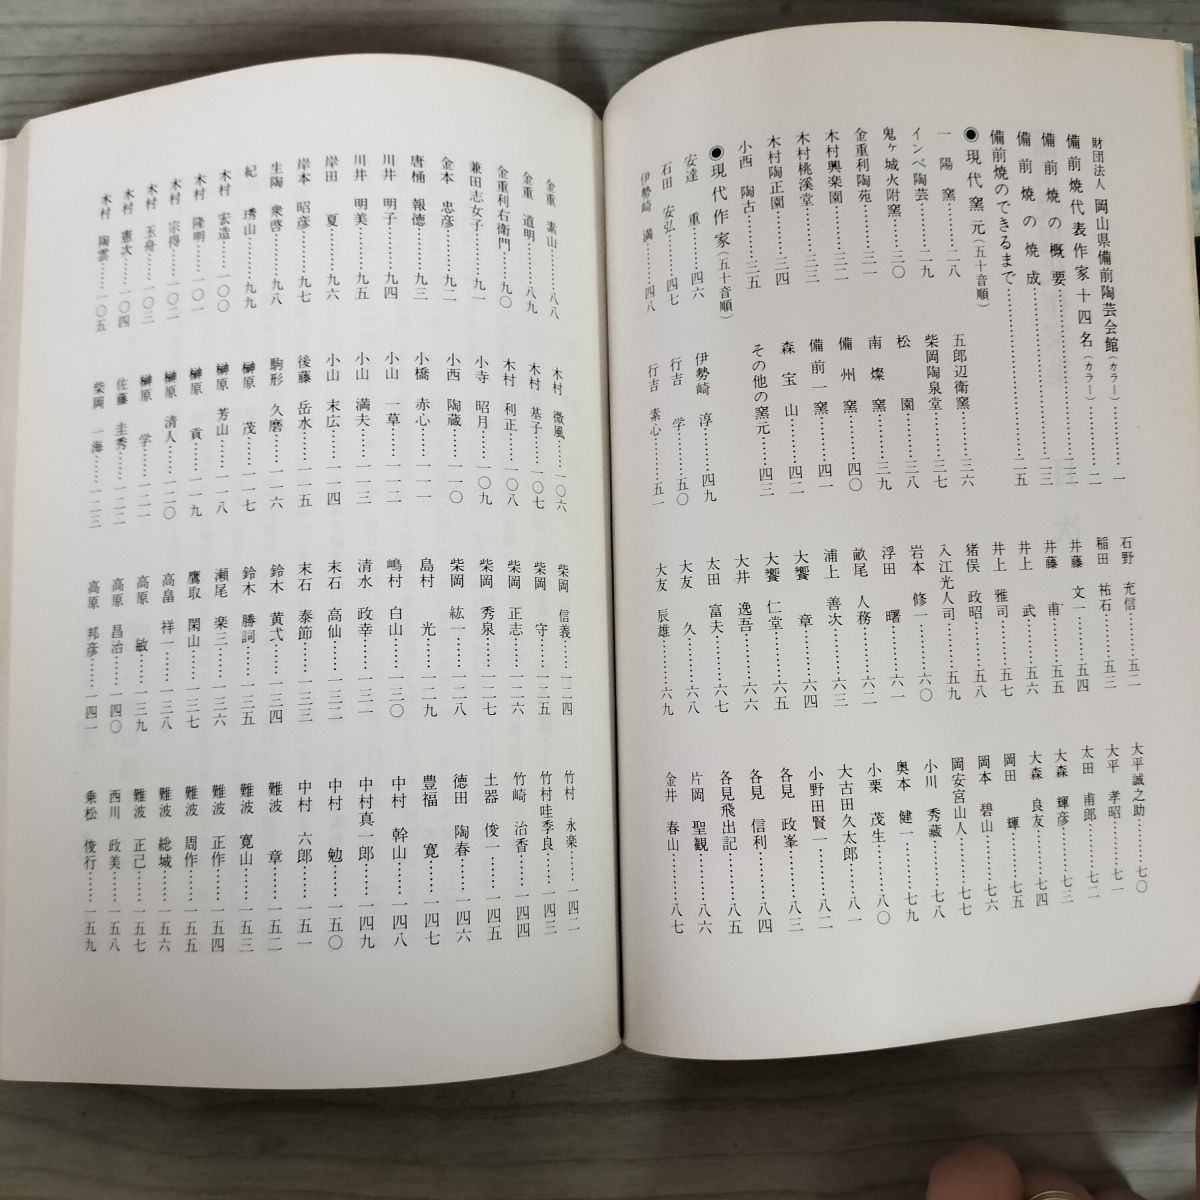 財団法人 岡山県備前陶芸会館(カラー)………一
備前焼代表作家十四名(カラー)………二
備前焼の概要………一二
備前焼の焼成………一三
備前焼のできるまで………一五
◉現代窯元(五十音順)
一陽窯………二八
インベ陶芸………二九
鬼ヶ城火附窯………三〇
金重利陶苑………三一
木村興楽園………三二
木村桃溪堂………三三
木村陶正園………三四
小西 陶古………三五
五郎辺衛窯………三六
柴岡陶泉堂………三七
松園………三八
南燦窯………三九
備州窯………四〇
備前一窯………四一
森宝山………四二
その他の窯元………四三
◉現代作家(五十音順)
安達 重………四六
石田 安弘………四七
伊勢崎 満………四八
伊勢崎 淳………四九
行吉 学………五〇
行吉 素心………五一
石野 充信………五二
稲田 祐石………五三
井藤 文一………五四
井藤 甫………五五
井上 武………五六
井上 雅司………五七
猪俣 政昭………五八
入江光人司………五九
岩本 修一………六〇
浮田 曙………六一
畝尾 人務………六二
浦上 善次………六三
大饗 章………六四
大饗 仁堂………六五
大井 逸吾………六六
太田 富夫………六七
大友 久………六八
大友 辰雄………六九
大平誠之助………七〇
大平 孝昭………七一
太田 甫郎………七二
大森 輝彦………七三
大森 良友………七四
岡田 輝………七五
岡本 碧山………七六
岡安宮山人………七七
小川 秀藏………七八
奥本 健一………七九
小栗 茂生………八〇
大古田久太郎………八一
小野田賢一………八二
各見 政峯………八三
各見 信利………八四
各見飛出記………八五
片岡 聖観………八六
金井 春山………八七
金重 素山………八八
金重 道明………八九
金重利右衛門………九〇
兼田志女子………九一
金本 忠彦………九二
唐桶 報徳………九三
川井 明子………九四
川井 明美………九五
岸田 夏………九六
岸本 昭彦………九七
生陶 衆啓………九八
紀 琇山………九九
木村 宏造………一〇〇
木村 隆明………一〇一
木村 宗得………一〇二
木村 玉舟………一〇三
木村 憲次………一〇四
木村 陶雲………一〇五
木村 微風………一〇六
木村 基子………一〇七
木村 利正………一〇八
小寺 昭月………一〇九
小西 陶蔵………一一〇
小橋 赤心………一一一
小山 一草………一一二
小山 満夫………一一三
小山 末広………一一四
後藤 岳水………一一五
駒形 久磨………一一六
榊原 茂………一一七
榊原 芳山………一一八
榊原 貢………一一九
榊原 清人………一二〇
榊原 学………一二一
佐藤 圭秀………一二二
柴岡 一海………一二三
柴岡 信義………一二四
柴岡 守………一二五
柴岡 正志………一二六
柴岡 秀泉………一二七
柴岡 紘一………一二八
島村 光………一二九
嶋村 白山………一三〇
清水 政幸………一三一
末石 高仙………一三二
末石 泰節………一三三
鈴木 黄弌………一三四
鈴木 勝詞………一三五
瀬尾 楽三………一三六
鷹取 閑山………一三七
高畠 祥一………一三八
高原 敏………一三九
高原 昌治………一四〇
高原 邦彦………一四一
竹村 永楽………一四二
竹村哇季良………一四三
竹崎 治香………一四四
土器 俊一………一四五
徳田 陶春………一四六
豊福 寛………一四七
中村 幹山………一四八
中村真一郎………一四九
中村 勉………一五〇
中村 六郎………一五一
難波 章………一五二
難波 寛山………一五三
難波 正作………一五四
難波 周作………一五五
難波 総城………一五六
難波 正己………一五七
西川 政美………一五八
乗松 俊行………一五九